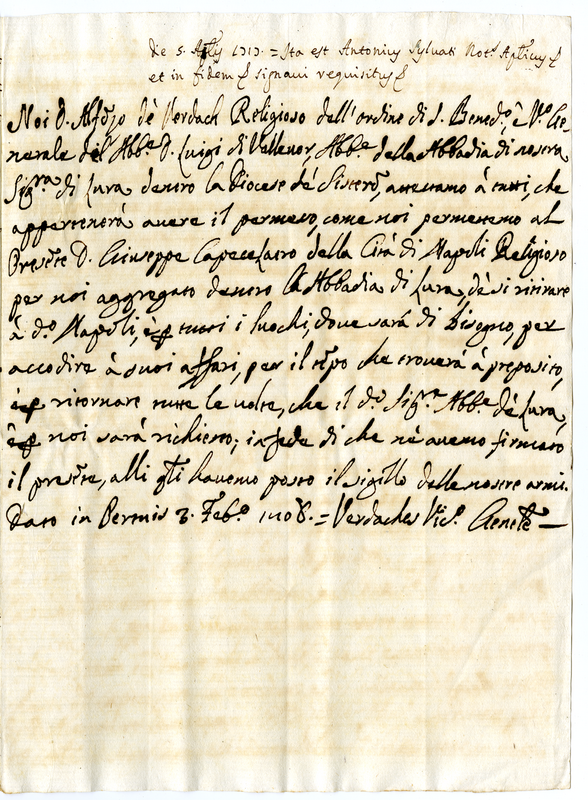 die 5. Aplis 1713. = Ita est Antonius Sylvati Nots Aplicus
et in fidem signavi requisitus
Noi D. Alfozo dè Verdach Religioso dell'ordine di S. Bened.o, è V.o Ge-
nerale del Abb.e D. Luigi di Vallenor, Abb.e della Abbadia di nostra
Sig.ra di Lura dentro la Diocese dè Sistero, attestamo à tutti, che
appartenerà avere il permesso, come noi permettemo al
Presete D. Giuseppe Capecelatro della Città di Napoli Religioso
per noi aggregato dentro la Abbadia di Lura, dè si ritirare
à d.o Napoli, è p tutti i luochi, dove sarà di bisogno, per
accodire à suoi affari, per il tepo che troverà à proposito,
è p ritornare tutte le volte, che il d.o Sig.r Abb.e dè Lura,
è p noi sarà richiesto; in fede di che nè avemo firmato
il presete, alli qli havemo posto il sigillo delle nostre armi.
Dato in Bermis 3. Feb.o 1708. = Verdaches Vic.o Genele —